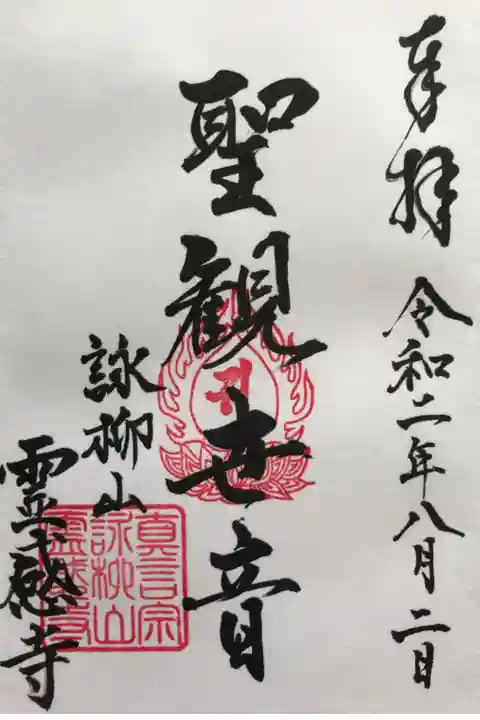 奉拝 令和二年八月二日
聖観世音
詠柳山
霊感寺
真言宗
詠柳山
霊感寺